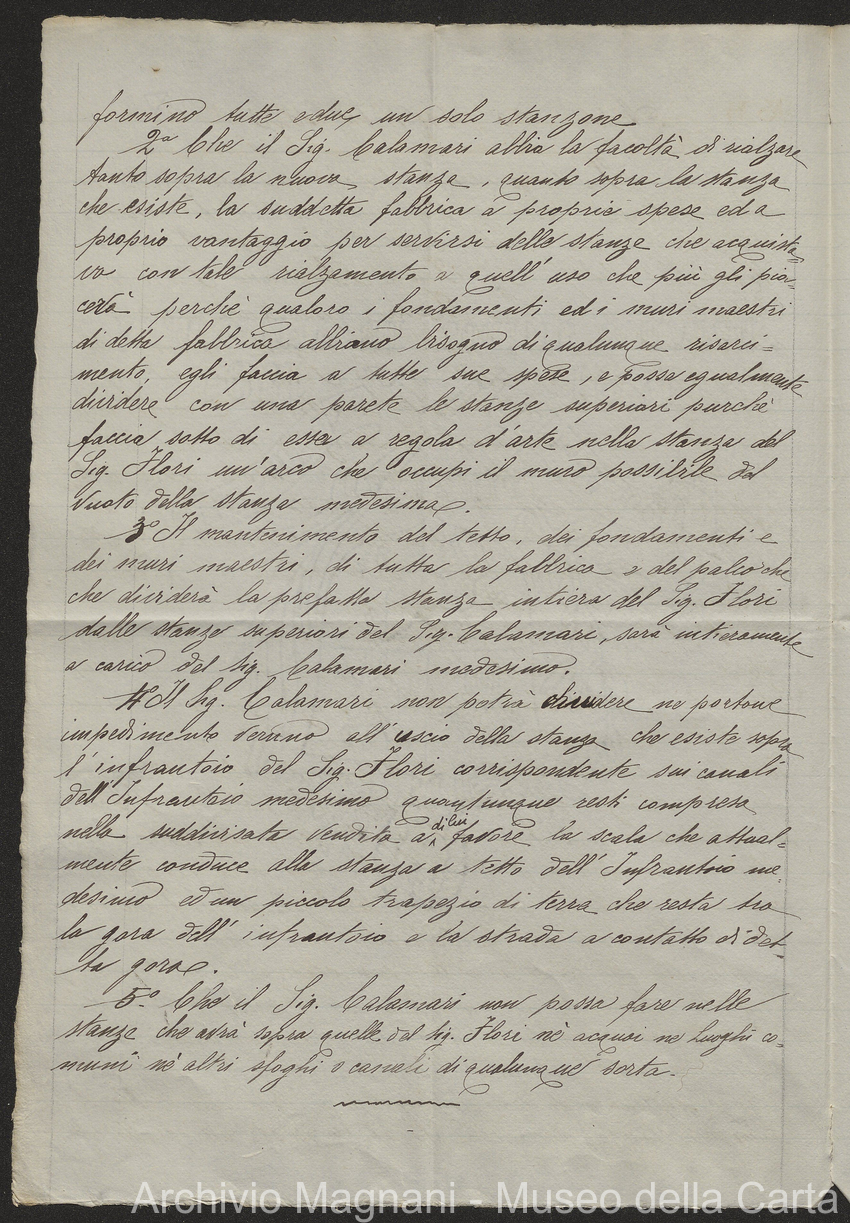 formino tutte e due un solo stanzone
2.a Che il Sig. Calamari abbia la facoltà di rialzare
tanto sopra la nuova stanza, quanto sopra la stanza
che esiste, la suddetta fabbrica a proprie spese ed a
proprio vantaggio per servirsi delle stanze che acquista=
va con tale rialzamento a quell'uso che più gli pia=
cerà perchè qualora i fondamenti ed i muri maestri
di detta fabbrica abbiano bisogno di qualunque risarci=
mento, egli faccia a tutte sue spese, e possa egualmente
dividere con una parete le stanze superiori purchè
faccia sotto di essa a regola d'arte nella stanza del
Sig. Flori un'arco che occupi il muro possibile del
vuoto della stanza medesima.
3.o Il mantenimento del tetto, dei fondamenti e
dei muri maestri, di tutta la fabbrica e del palco che
che dividerà la prefatta stanza intiera del Sig. Flori
dalle stanze superiori del Sig. Calamari, sarà intieramente
a carico del Sig. Calamari medesimo.
4. Il Sig. Calamari non potrà chiudere ne portare
impedimento veruno all'uscio della stanza che esiste sopra
l'infrantoio del Sig. Flori corrispondente sui canali
dell'Infrantoio medesimo quantunque resti compresa
nella suddivisata vendita a di lui favore la scala che attual=
mente conduce alla stanza a tetto dell'Infrantoio me=
desimo ed un piccolo trapezio di terra che resta tra
la gora dell'infrantoio e la strada a contatto di det=
ta gora.
5.o Che il Sig. Calamari non possa fare nelle
stanze che avrà sopra quelle del Sig. Flori nè acquai ne luoghi co=
muni nè altri sfoghi o canali di qualunque sorta.
Archivio Magnani - Museo della Carta